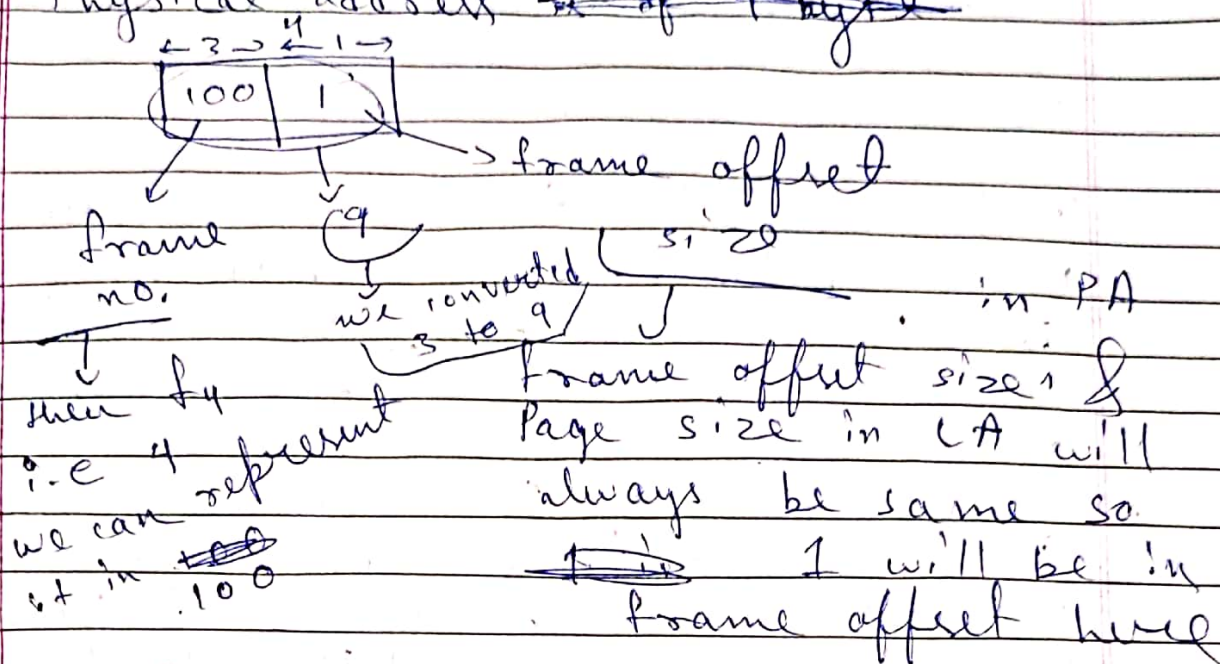 Physical address of 1 byte
4
← 3 → ← 1 →
100 | 1
→ frame offset
size
frame
no.
9
we converted
3 to 9
in PA
then f4
i.e 4
we can represent
it in 100
100
frame offset size &
Page size in LA will
always be same so
1 is 1 will be in
frame offset here